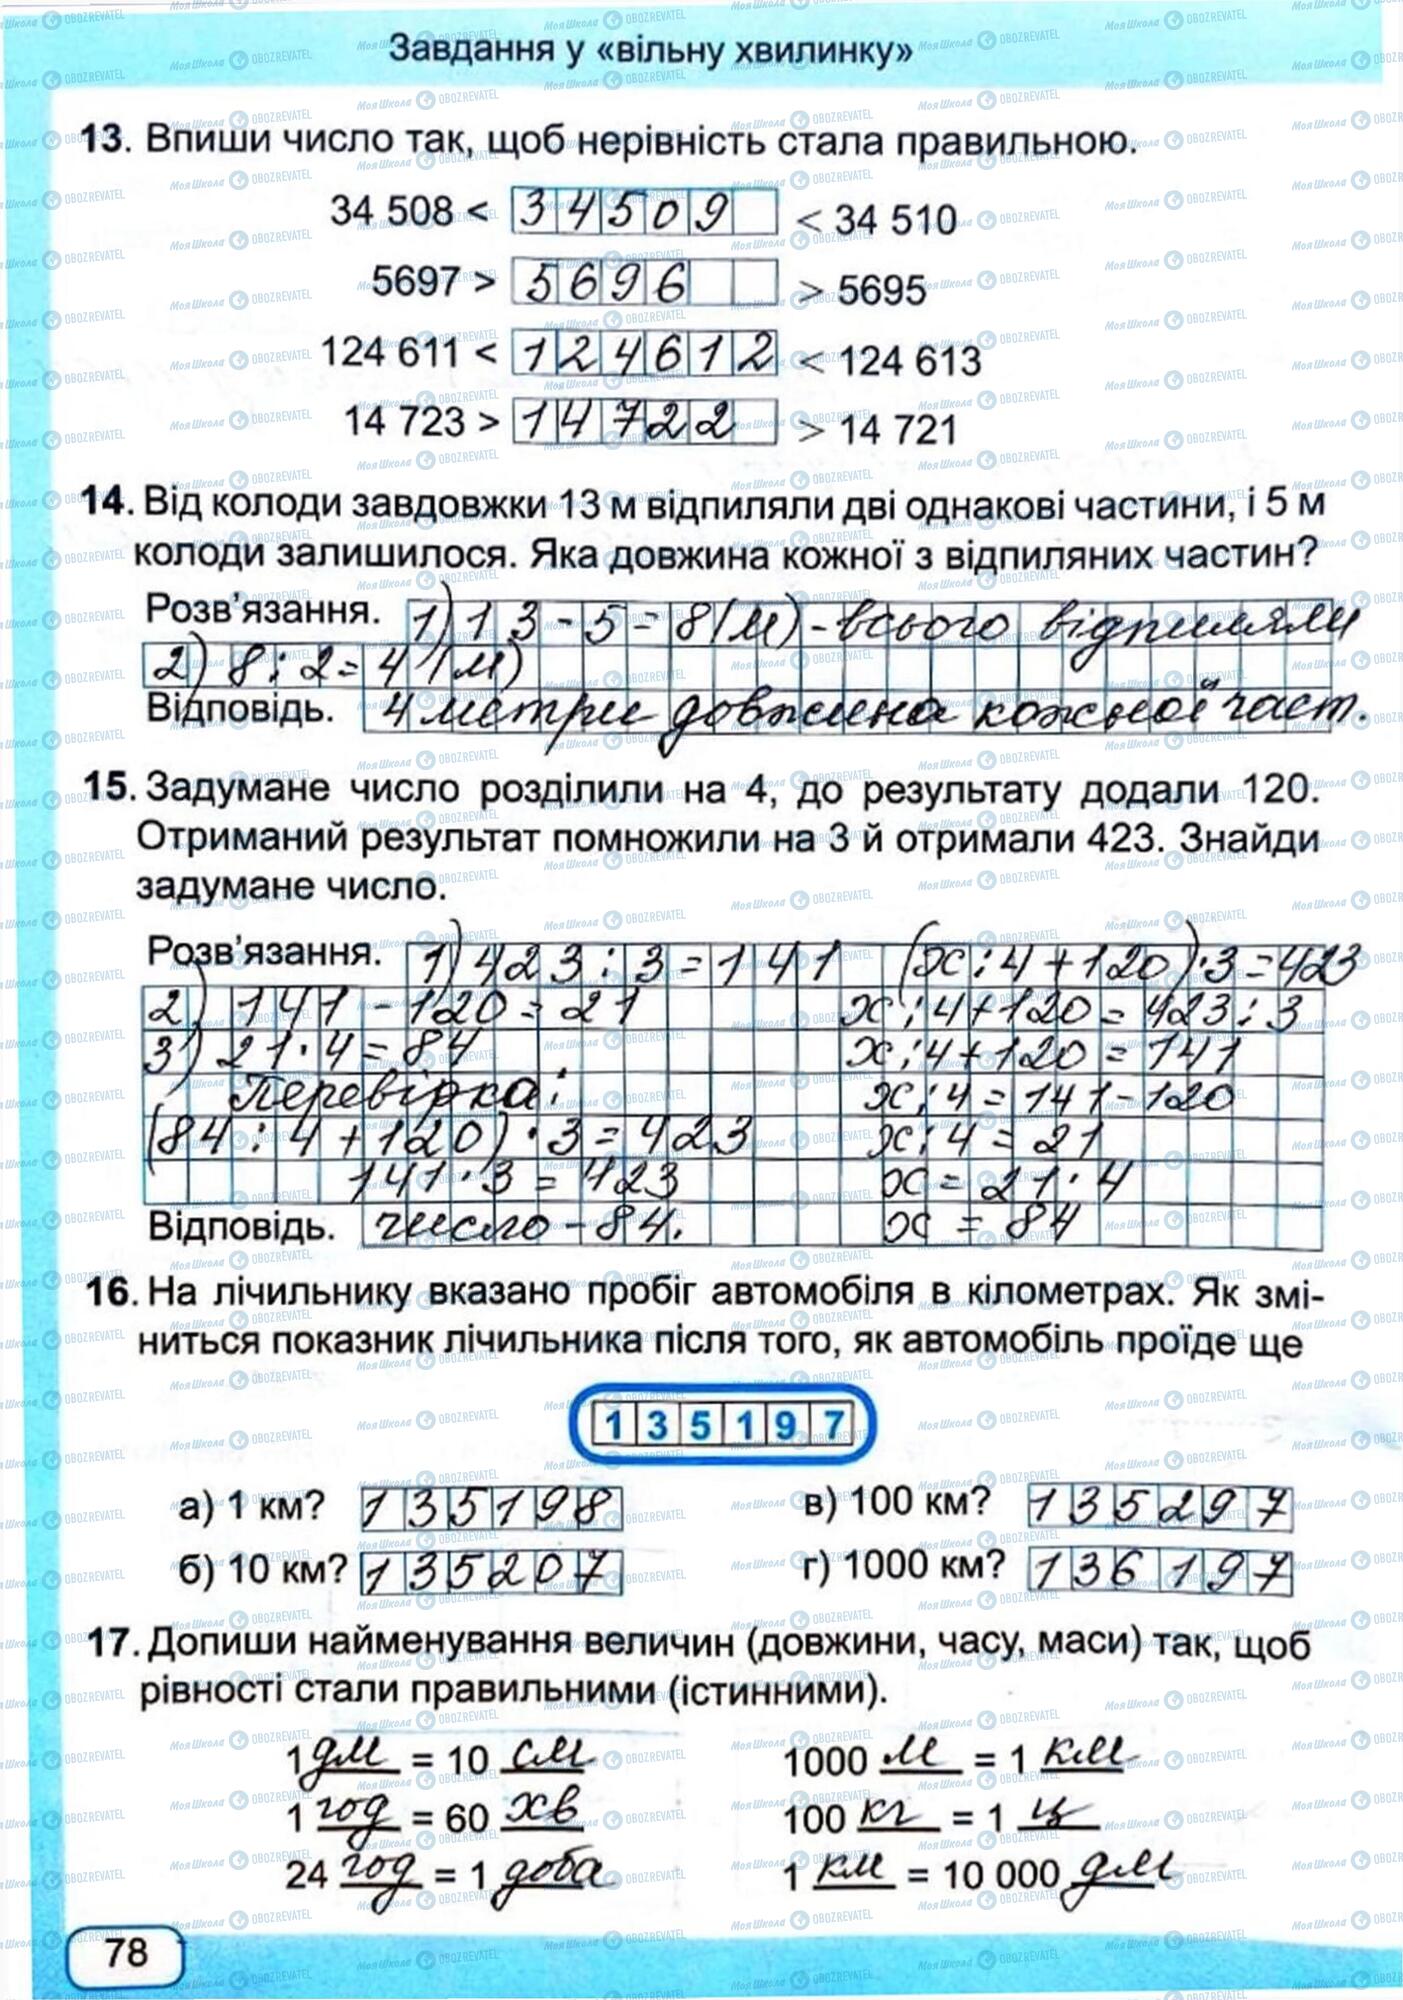 Завдання у «вільну хвилинку»
13. Впиши число так, щоб нерівність стала правильною.
34 508 < 34509 < 34 510
5697 > 5696 > 5695
124 611 < 124612 < 124 613
14 723 > 14722 > 14 721
14. Від колоди завдовжки 13 м відпиляли дві однакові частини, і 5 м
колоди залишилося. Яка довжина кожної з відпиляних частин?
Розв'язання. 1) 13 - 5 = 8 (м) - всього відпиляли
2) 8 : 2 = 4 (м)
Відповідь. 4 метри довжина кожної част.
15. Задумане число розділили на 4, до результату додали 120.
Отриманий результат помножили на 3 й отримали 423. Знайди
задумане число.
Розв'язання. 1) 423 : 3 = 141 (х : 4 + 120) · 3 = 423
2) 141 - 120 = 21 х : 4 + 120 = 423 : 3
3) 21 · 4 = 84 х : 4 + 120 = 141
Перевірка: х : 4 = 141 - 120
(84 : 4 + 120) · 3 = 423 х : 4 = 21
141 · 3 = 423 х = 21 · 4
Відповідь. число - 84. х = 84
16. На лічильнику вказано пробіг автомобіля в кілометрах. Як змі-
ниться показник лічильника після того, як автомобіль проїде ще
135197
а) 1 км? 135198 в) 100 км? 135297
б) 10 км? 135207 г) 1000 км? 136197
17. Допиши найменування величин (довжини, часу, маси) так, щоб
рівності стали правильними (істинними).
1 дм = 10 см 1000 м = 1 км
1 год = 60 хв 100 кг = 1 ц
24 год = 1 доба 1 км = 10 000 дм
78